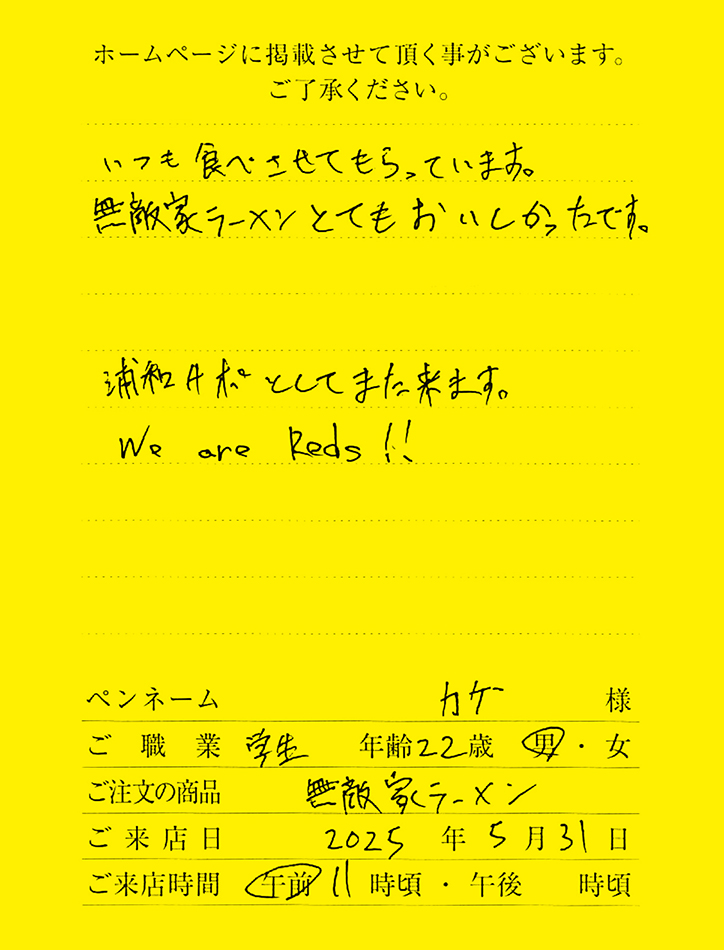 ホームページに掲載させて頂く事がございます。
ご了承ください。
いつも食べさせてもらっています。
無敵家ラーメンとてもおいしかったです。
浦和サポとしてまた来ます。
We are Reds!!
ペンネーム カケ 様
ご職業 学生 年齢22歳 男・女
ご注文の商品 無敵家ラーメン
ご来店日 2025年5月31日
ご来店時間 午前11時頃・午後 時頃